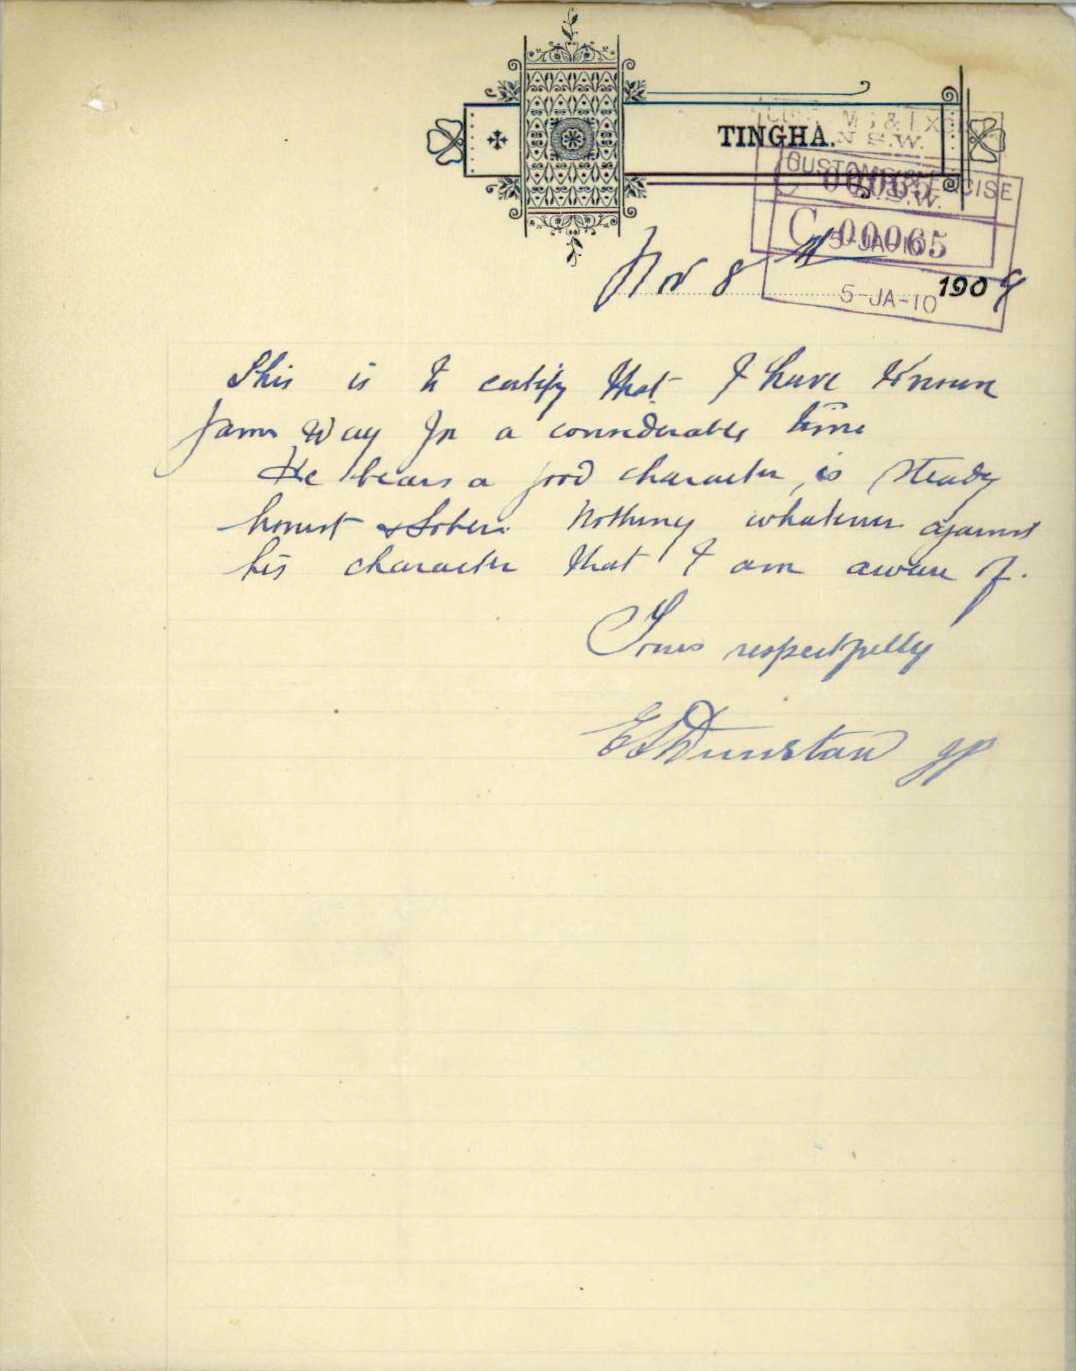 TINGHA.
CUSTOMS & EXCISE
N.S.W.
C 00065
5-JA-10
Nov 8th 1909
This is to certify that I have known
James Way for a considerable time
He bears a good character, is steady
honest & sober. Nothing whatever against
his character that I am aware of.
Yours respectfully
Dunstan JP